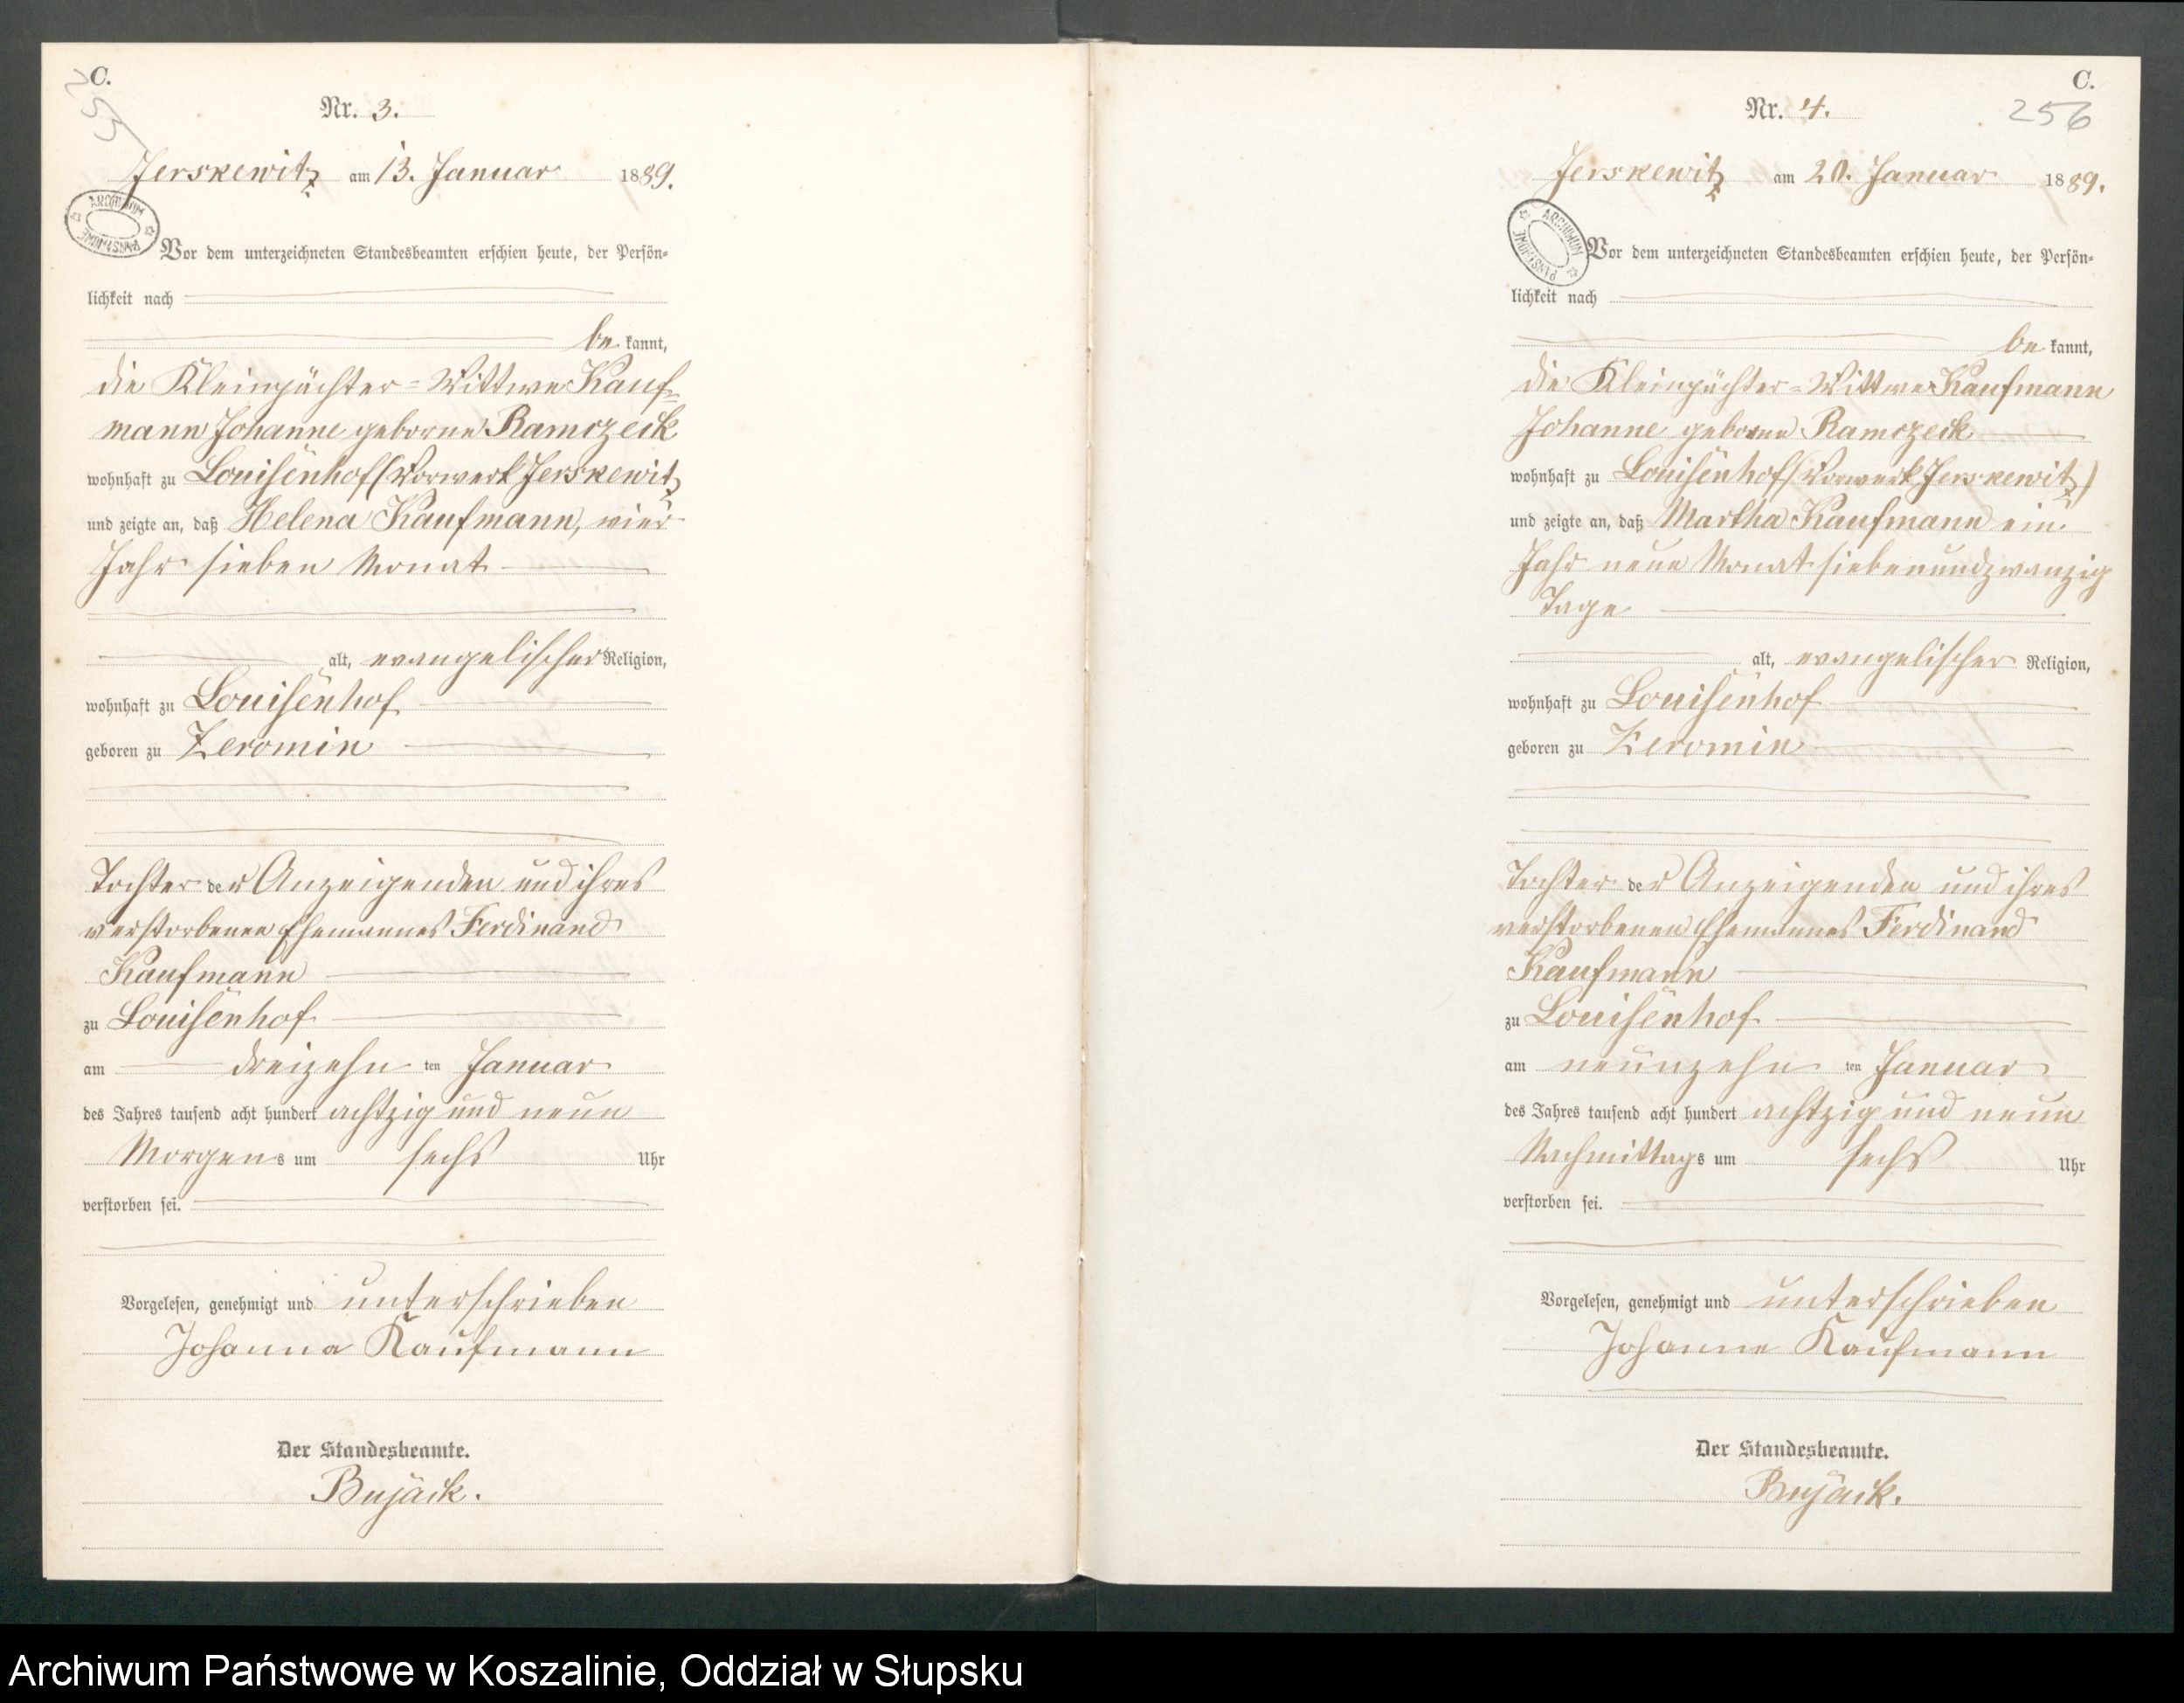 C.
255
Nr. 3.
Jerskewitz am 13. Januar 1889.
ARCHIWUM PAŃSTWOWE
Vor dem unterzeichneten Standesbeamten erschien heute, der Persön-
lichkeit nach
be kannt,
die Kleinpächter-Wittwe Kauf-
mann Johanne geborne Ramczeck
wohnhaft zu Louisenhof (Vorwerk Jerskewitz
und zeigte an, daß Helena Kaufmann, vier
Jahr sieben Monat
alt, evangelischer Religion,
wohnhaft zu Louisenhof
geboren zu Zeromin
Tochter der Anzeigenden und ihres
verstorbenen Ehemannes Ferdinand
Kaufmann
zu Louisenhof
am dreizehn ten Januar
des Jahres tausend acht hundert achtzig und neun
Morgens um sechs Uhr
verstorben sei.
Vorgelesen, genehmigt und unterschrieben
Johanna Kaufmann
Der Standesbeamte.
Bujack.
C.
256
Nr. 4.
Jerskewitz am 20. Januar 1889.
ARCHIWUM PAŃSTWOWE
Vor dem unterzeichneten Standesbeamten erschien heute, der Persön-
lichkeit nach
be kannt,
die Kleinpächter-Wittwe Kaufmann
Johanne geborne Ramczeck
wohnhaft zu Louisenhof (Vorwerk Jerskewitz)
und zeigte an, daß Martha Kaufmann ein
Jahr neun Monat siebenundzwanzig
Tage
alt, evangelischer Religion,
wohnhaft zu Louisenhof
geboren zu Zeromin
Tochter der Anzeigenden und ihres
verstorbenen Ehemannes Ferdinand
Kaufmann
zu Louisenhof
am neunzehn ten Januar
des Jahres tausend acht hundert achtzig und neun
Nachmittags um sechs Uhr
verstorben sei.
Vorgelesen, genehmigt und unterschrieben
Johanne Kaufmann
Der Standesbeamte.
Bujack.
Archiwum Państwowe w Koszalinie, Oddział w Słupsku